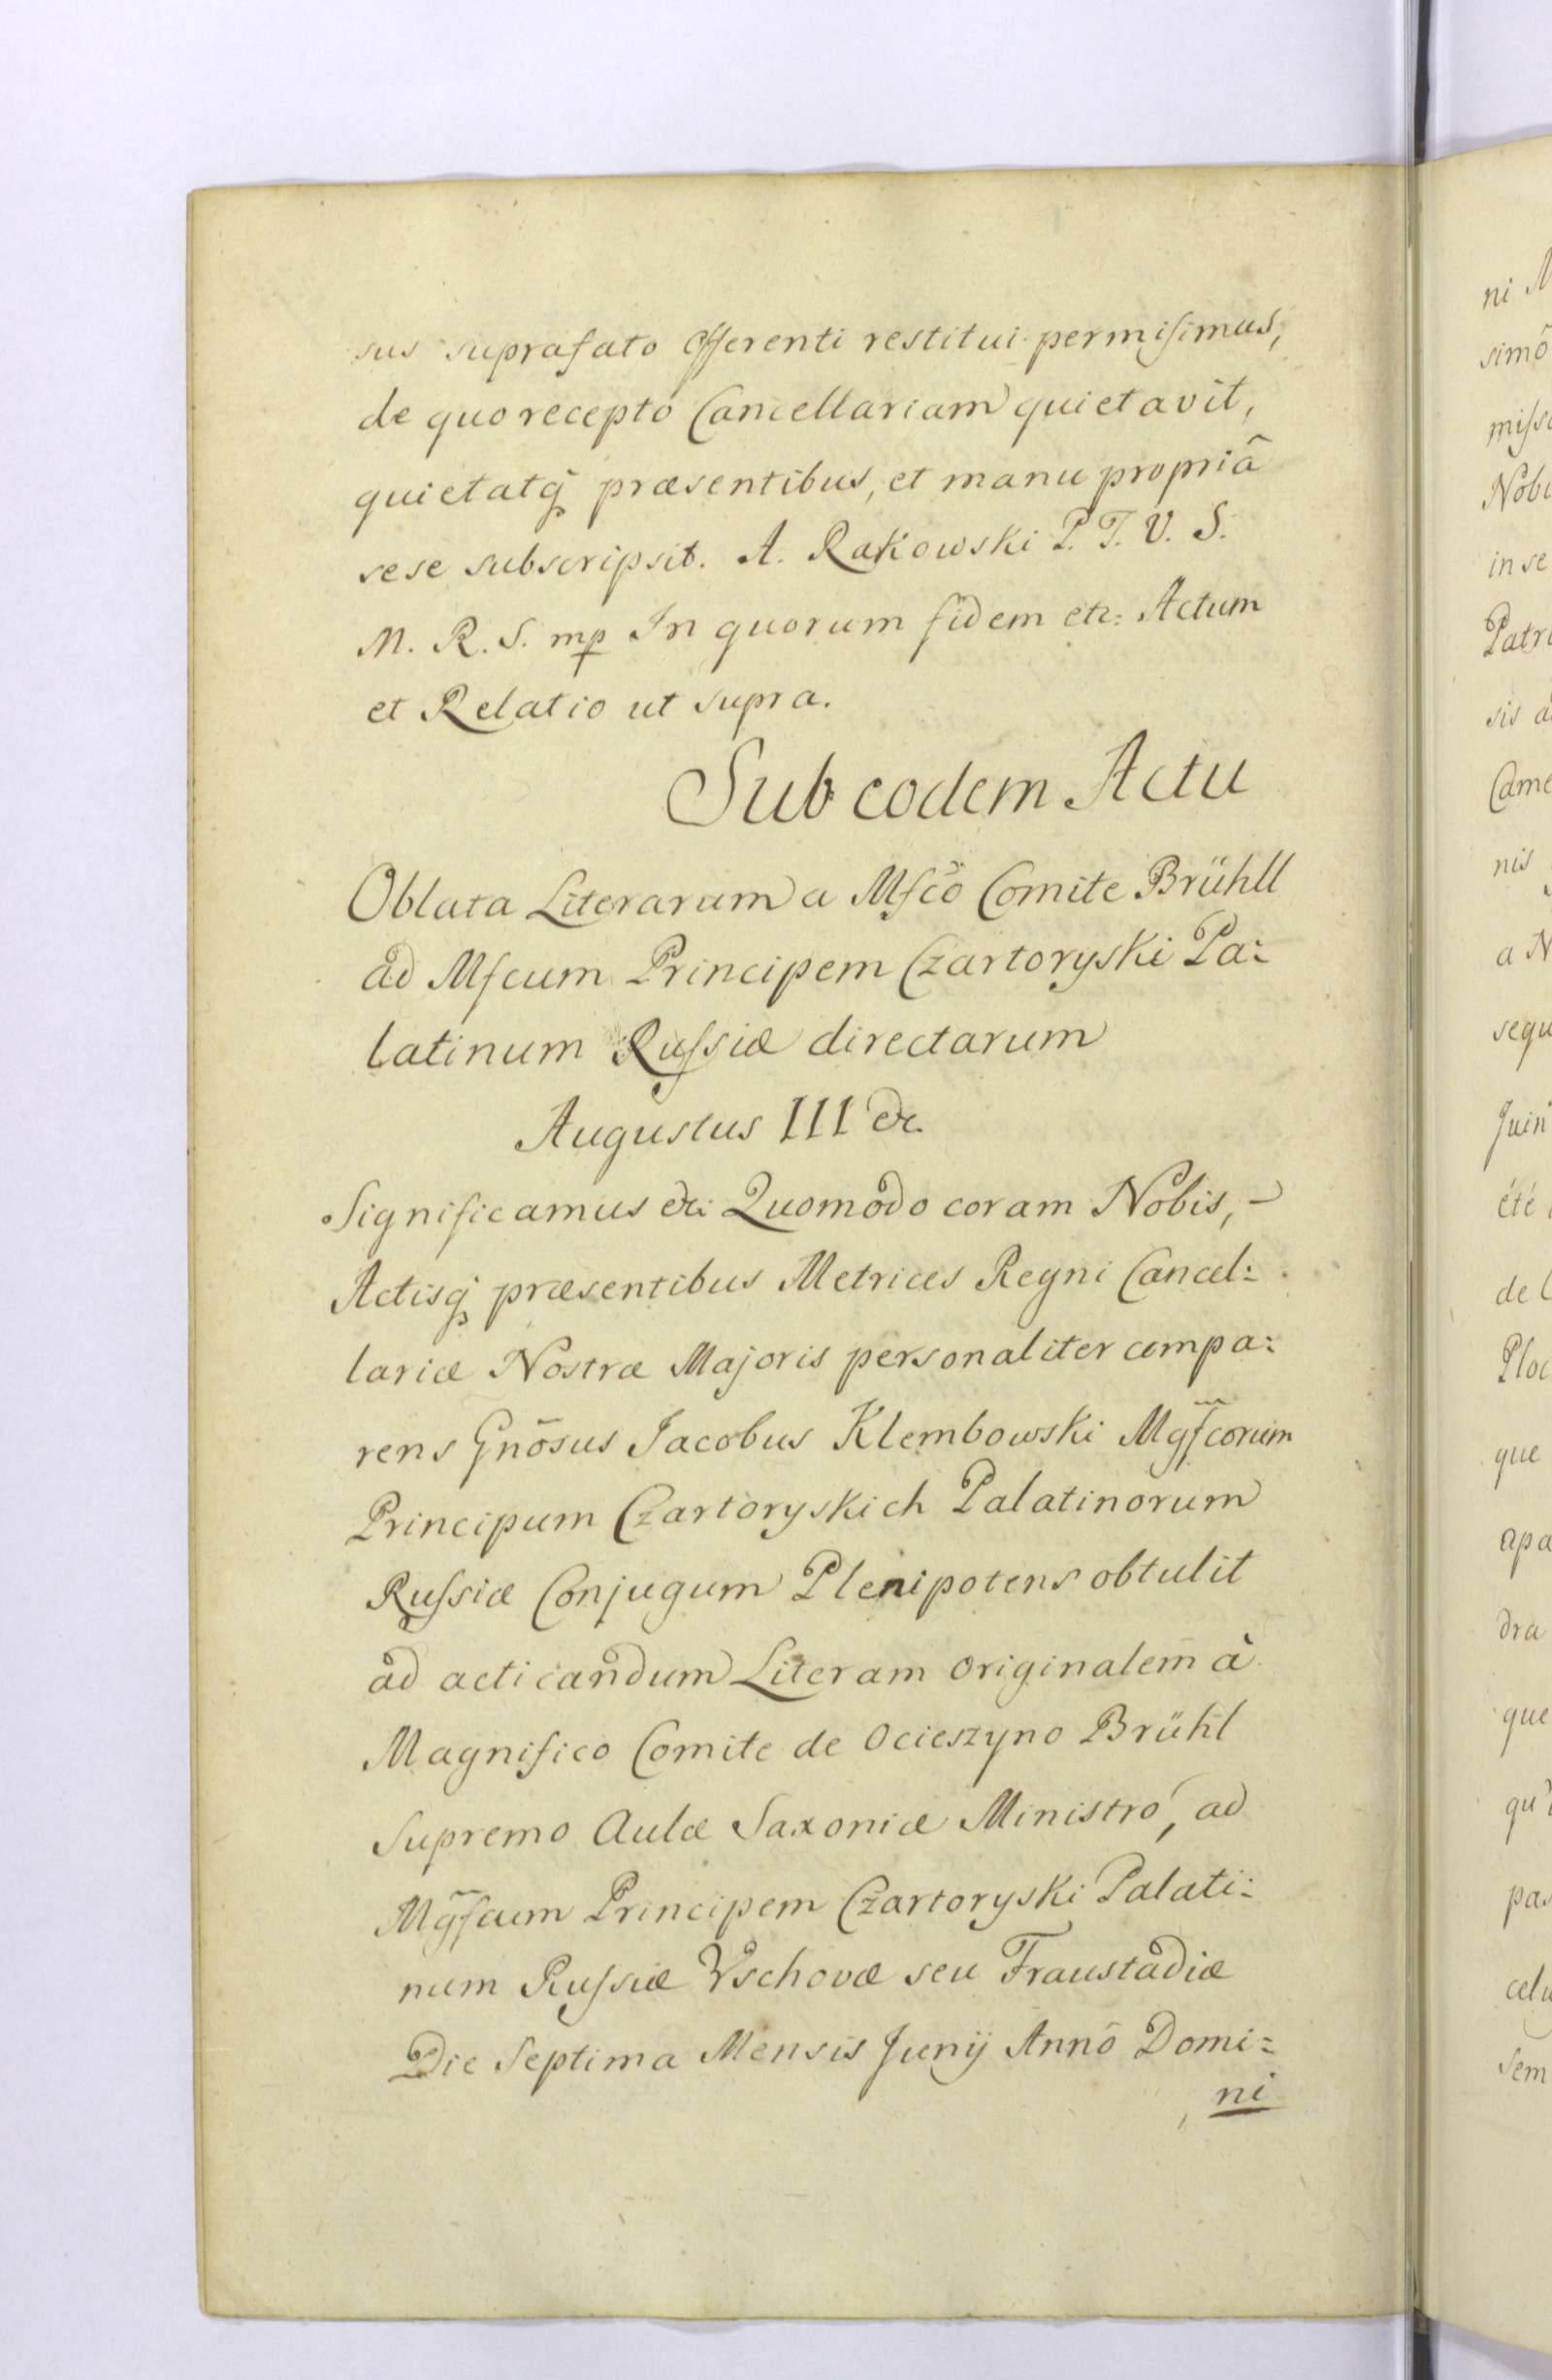 sus suprafato Offerenti restitui permisimus,
de quo recepto Cancellariam quietavit,
quietatq̃ præsentibus, et manu propriâ
sese subscripsit. A. Rakowski P. T. V. S.
M. R. S. mp In quorum fidem etc: Actum
et Relatio ut supra.
Sub eodem Actu
Oblata Literarum a Mfcō Comite Brühll
ad Mfcum Principem Czartoryski Pa:
latinum Russiæ directarum
Augustus III &c.
Significamus &c: Quomodo coram Nobis, –
Actisq̃ præsentibus Metrices Regni Cancel:
lariæ Nostræ Majoris personaliter compa:
rens Gnōsus Jacobus Klembowski Mgf̃corum
Principum Czartoryskich Palatinorum
Russiæ Conjugum Plenipotens obtulit
ad acticandum Literam originalem à
Magnifico Comite de Ocieszyno Brühl
Supremo Aulæ Saxoniæ Ministro, ad
Mg̃fcum Principem Czartoryski Palati:
num Russiæ Vschovæ seu Fraustadiæ
Die Septima Mensis Junij Annō Domi=
ni
ni M
simō
misso
Nobi
in se
Patri
sis a
Came
nis
a N
sequ
Juin
été
de C
Ploc
que
apa
dra
que
qu'i
pas
celu
sem